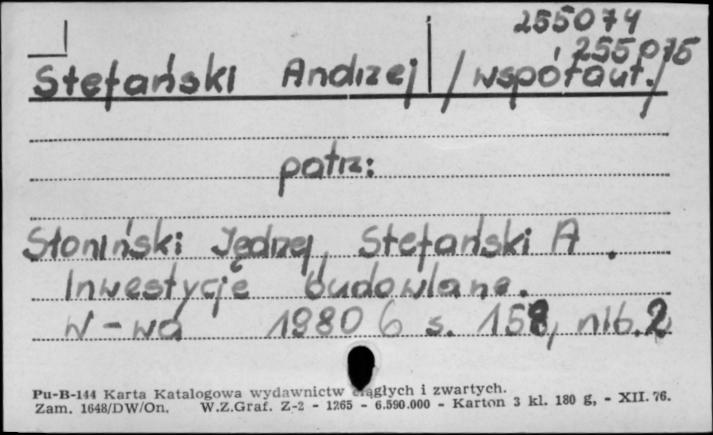 255074
255075
Stefański Andrzej /współaut./
patrz:
Słoniński Jędrzej, Stefański A.
Inwestycje budowlane.
W-wa 1980 6 s. 158, nlb. 2
Pu-B-144 Karta Katalogowa wydawnictw ciągłych i zwartych.
Zam. 1648/DW/On. W.Z.Graf. Z-2 - 1265 - 6.590.000 - Karton 3 kl. 180 g, - XII. 76.